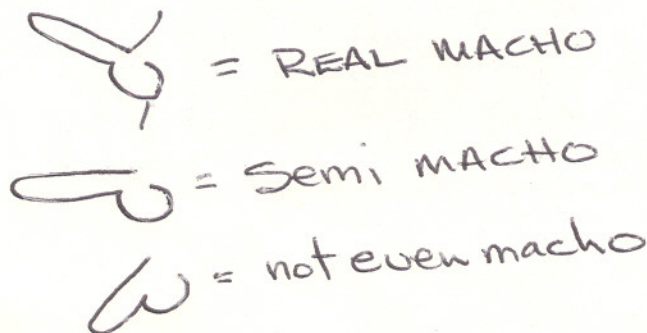 = REAL MACHO
= Semi MACHO
= not even macho